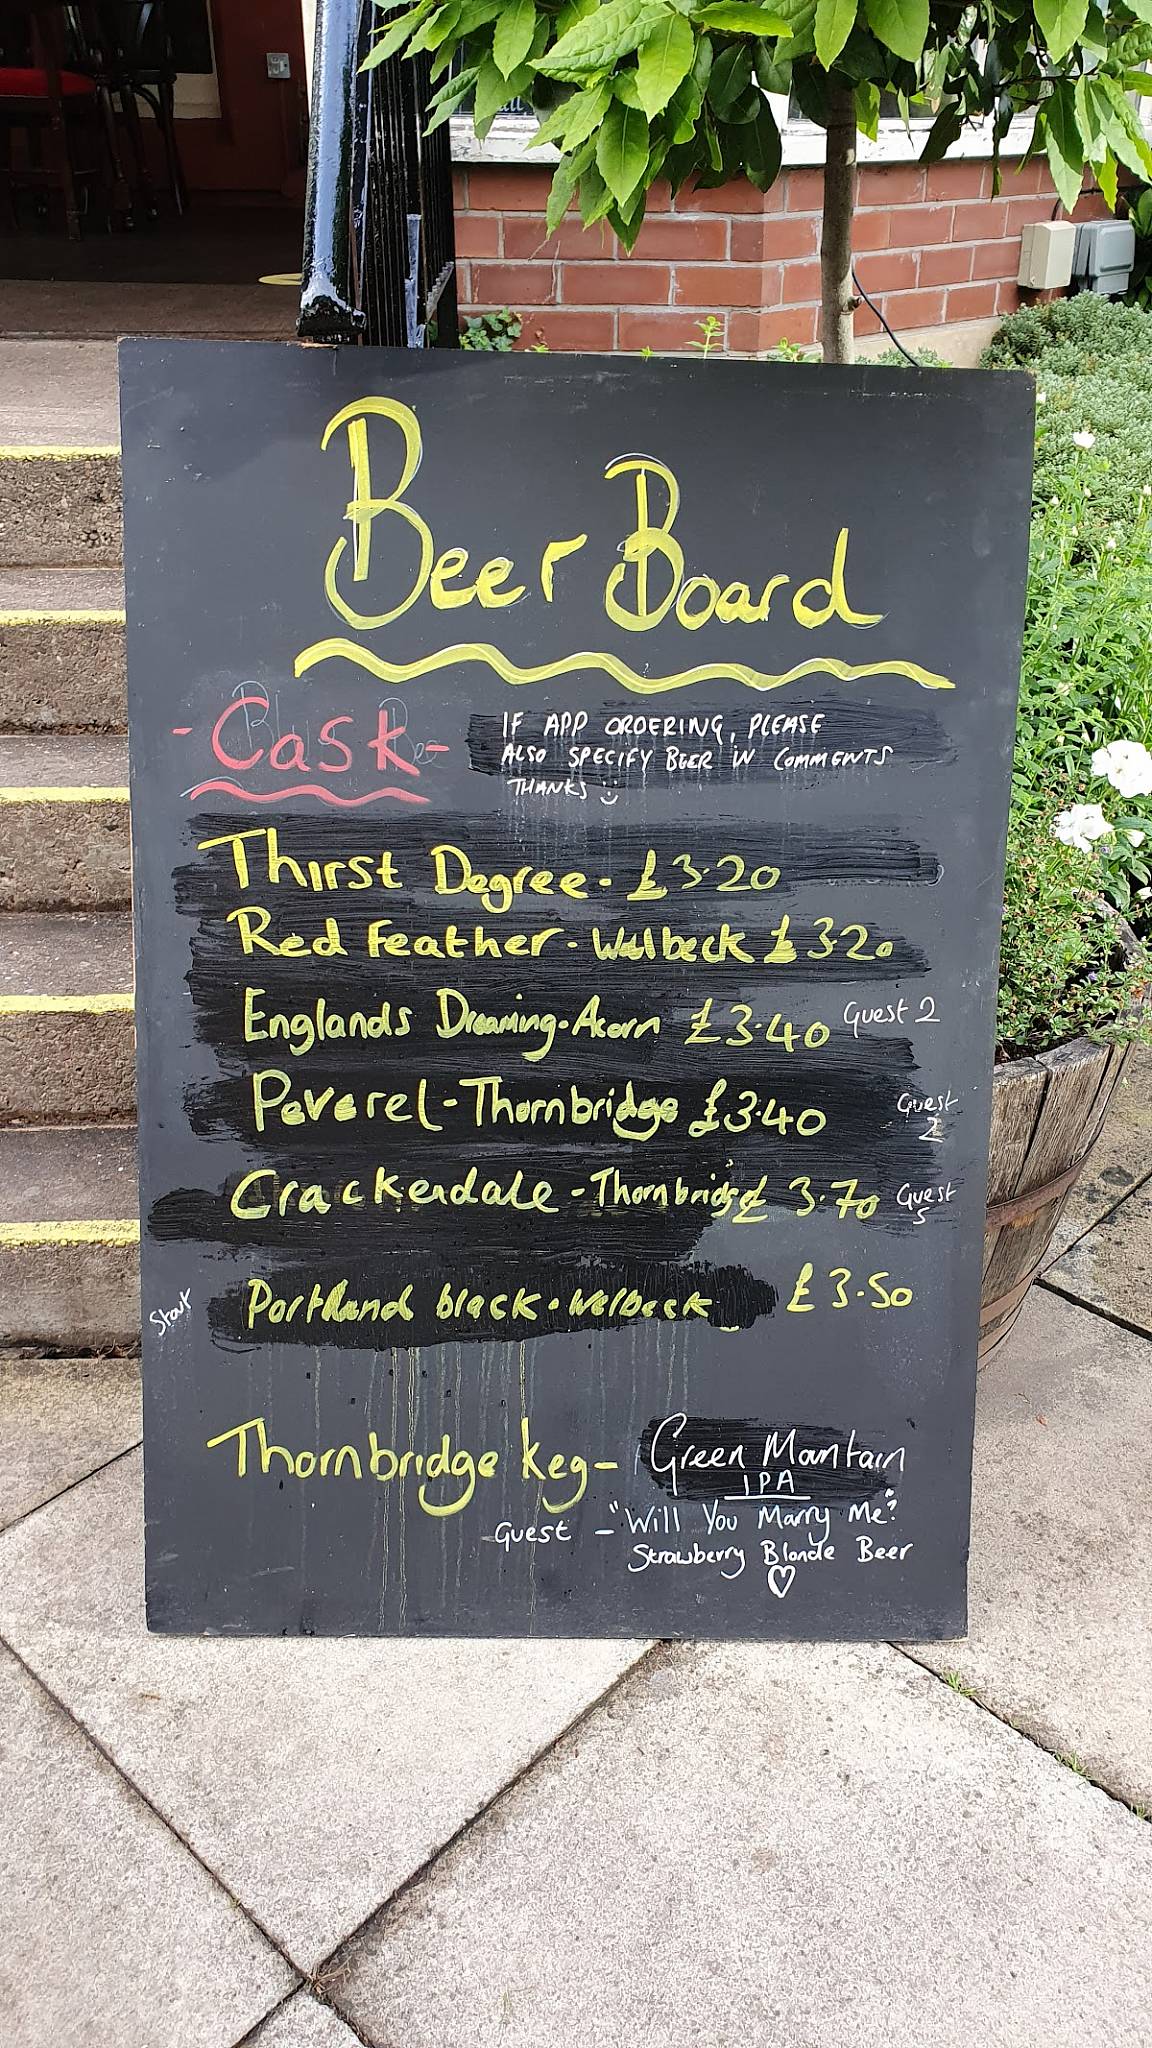 Beer Board
- Cask -
IF APP ORDERING, PLEASE
ALSO SPECIFY BEER IN COMMENTS
THANKS :)
Thirst Degree - £3.20
Red Feather - Welbeck £3.20
Englands Dreaming - Acorn £3.40 Guest 2
Peverel - Thornbridge £3.40 Guest
2
Crackendale - Thornbridge £3.70 Guest
5
Stout Portland black - Welbeck £3.50
Thornbridge Keg - Green Mountain
IPA
Guest - "Will You Marry Me?"
Strawberry Blonde Beer
♡